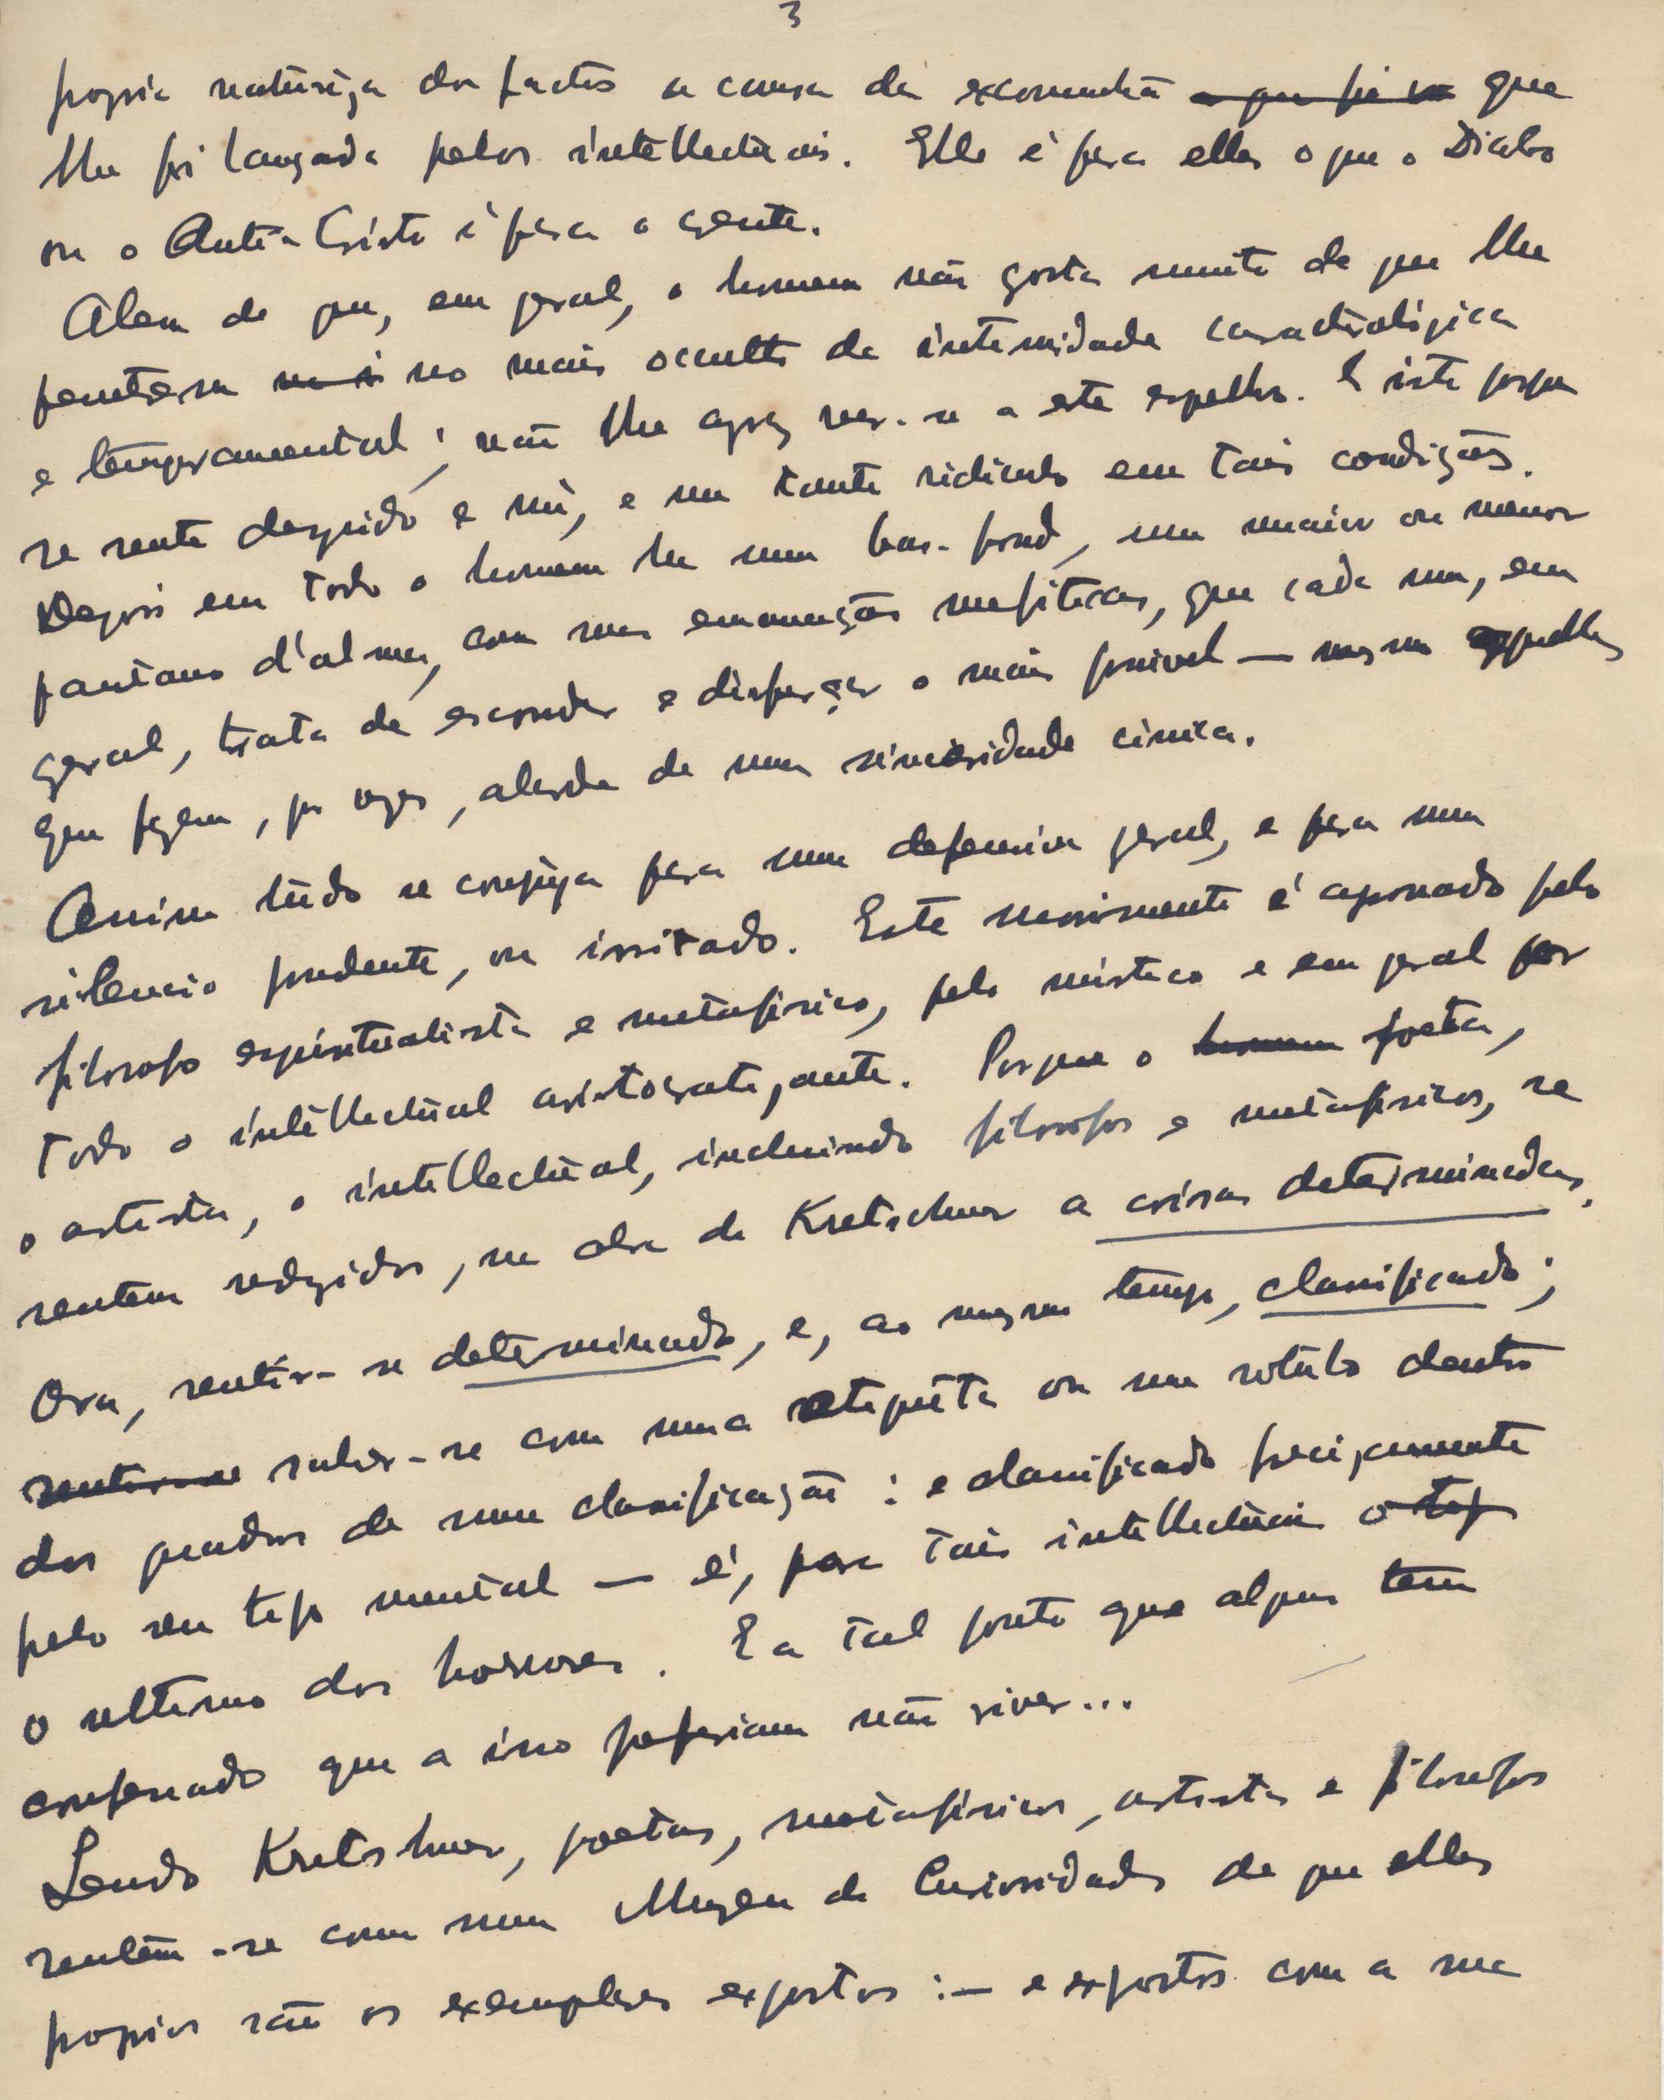 3
propria natureza dos factos a causa da excomunhão que
lhe foi lançada pelos intellectuais. Elle é para elles o que o Diabo
ou o Anti-Cristo é para o crente.
Alem de que, em geral, o homem não gosta muito de que lhe
penetrem no mais occulto da intimidade caracterológica
e temperamental; não lhe apraz ver-se a este espelho. E isto porque
se sente despido e nú, e um tanto ridiculo em tais condições.
Depois em todo o homem ha um bas-fond, um maior ou menor
pantano d'alma, com suas emanações mefiticas, que cada um, em
geral, trata de esconder e disfarçar o mais possivel — mesmo aquelles
que fazem, por vezes, alarde de uma sinceridade cinica.
Assim tudo se conjuga para uma defensiva geral, e para um
silencio prudente, ou irritado. Este movimento é apoiado pelo
filosofo espiritualista e metafisico, pelo mistico e em geral por
todo o intellectual aristocratizante. Porque o homem poeta,
o artista, o intellectual, incluindo filosofos e metafisicos, se
sentem reduzidos, na obra de Kretschmer a coisas determinadas.
Ora, sentir-se determinado, e, ao mesmo tempo, classificado;
sentir-se saber-se com uma etiqueta ou um rotulo dentro
dos quadros de uma classificação: e classificado precizamente
pelo seu tipo mental — é, para tais intellectuais o tip
o ultimo dos horrores. E a tal ponto que alguns tem
confessado que a isso preferiam não viver...
Lendo Kretshmer, poetas, metafisicos, artistas e filosofos
sentem-se como num Muzeu de Curiosidades de que elles
proprios são os exemplares expostos: — e expostos com a sua